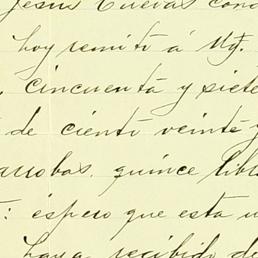 Jesus Cuevas cond
hoy remito á Ud.
cincuenta y siete
de ciento veinte y
arrobas quince lib
: espero que esta
haya recibido de